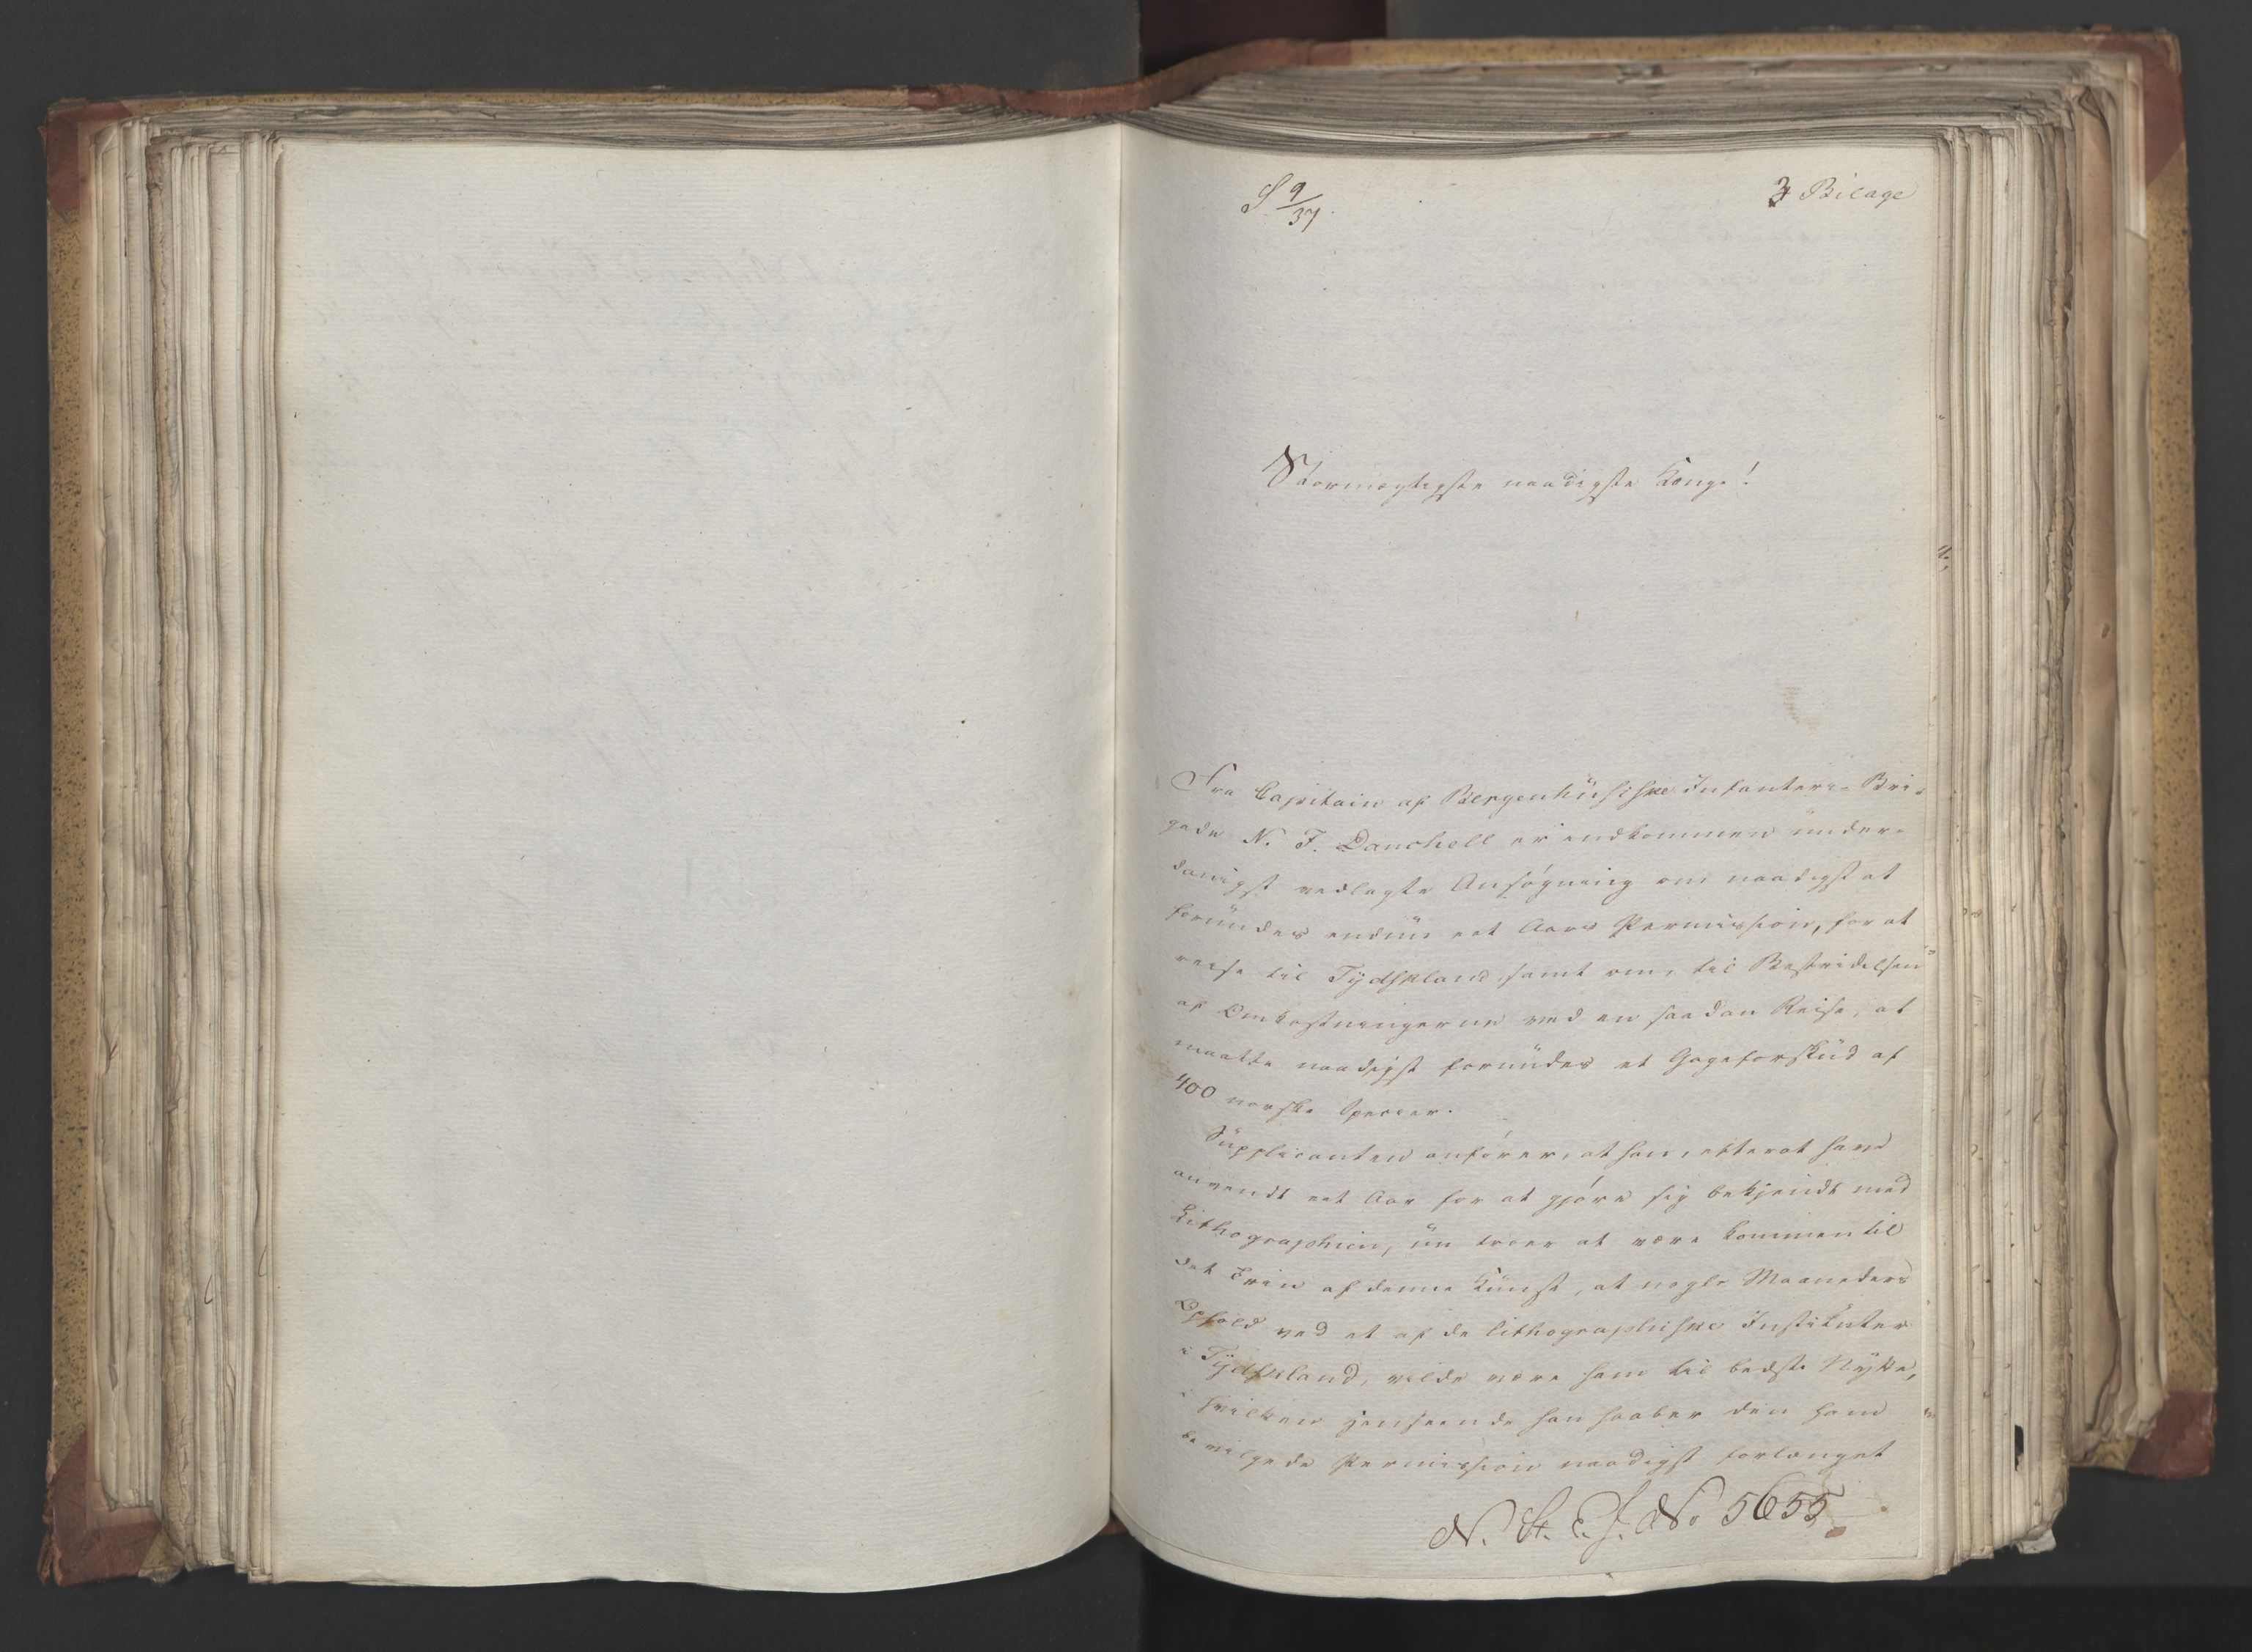 S 9/37.
3 Bilage
Stormægtigste naadigste Konge!
Fra Capitain af Bergenhuusiske Infanteri-Bri-
gade N. F. Danchell er indkommen under-
danigst vedlagte Ansøgning om naadigst at
forundes endnu eet Aars Permission, for at
reise til Tydskland, samt om, til Bestridelsen
af Omkostningerne ved en saadan Reise, at
maatte naadigst forundes et Gageforskud af
400 norske Specier.
Supplicanten anfører, at han, efterat have
anvendt eet Aar for at gjøre sig bekjendt med
Lithographien, nu troer at være kommen til
det Trin af denne Kunst, at nogle Maaneders
Ophold ved et af de lithographiske Instituter
i Tydskland, vilde være ham til bedste Nytte,
i hvilken Henseende han haaber den ham
bevilgede Permission naadigst forlænget
N. St. E. J. No 5655